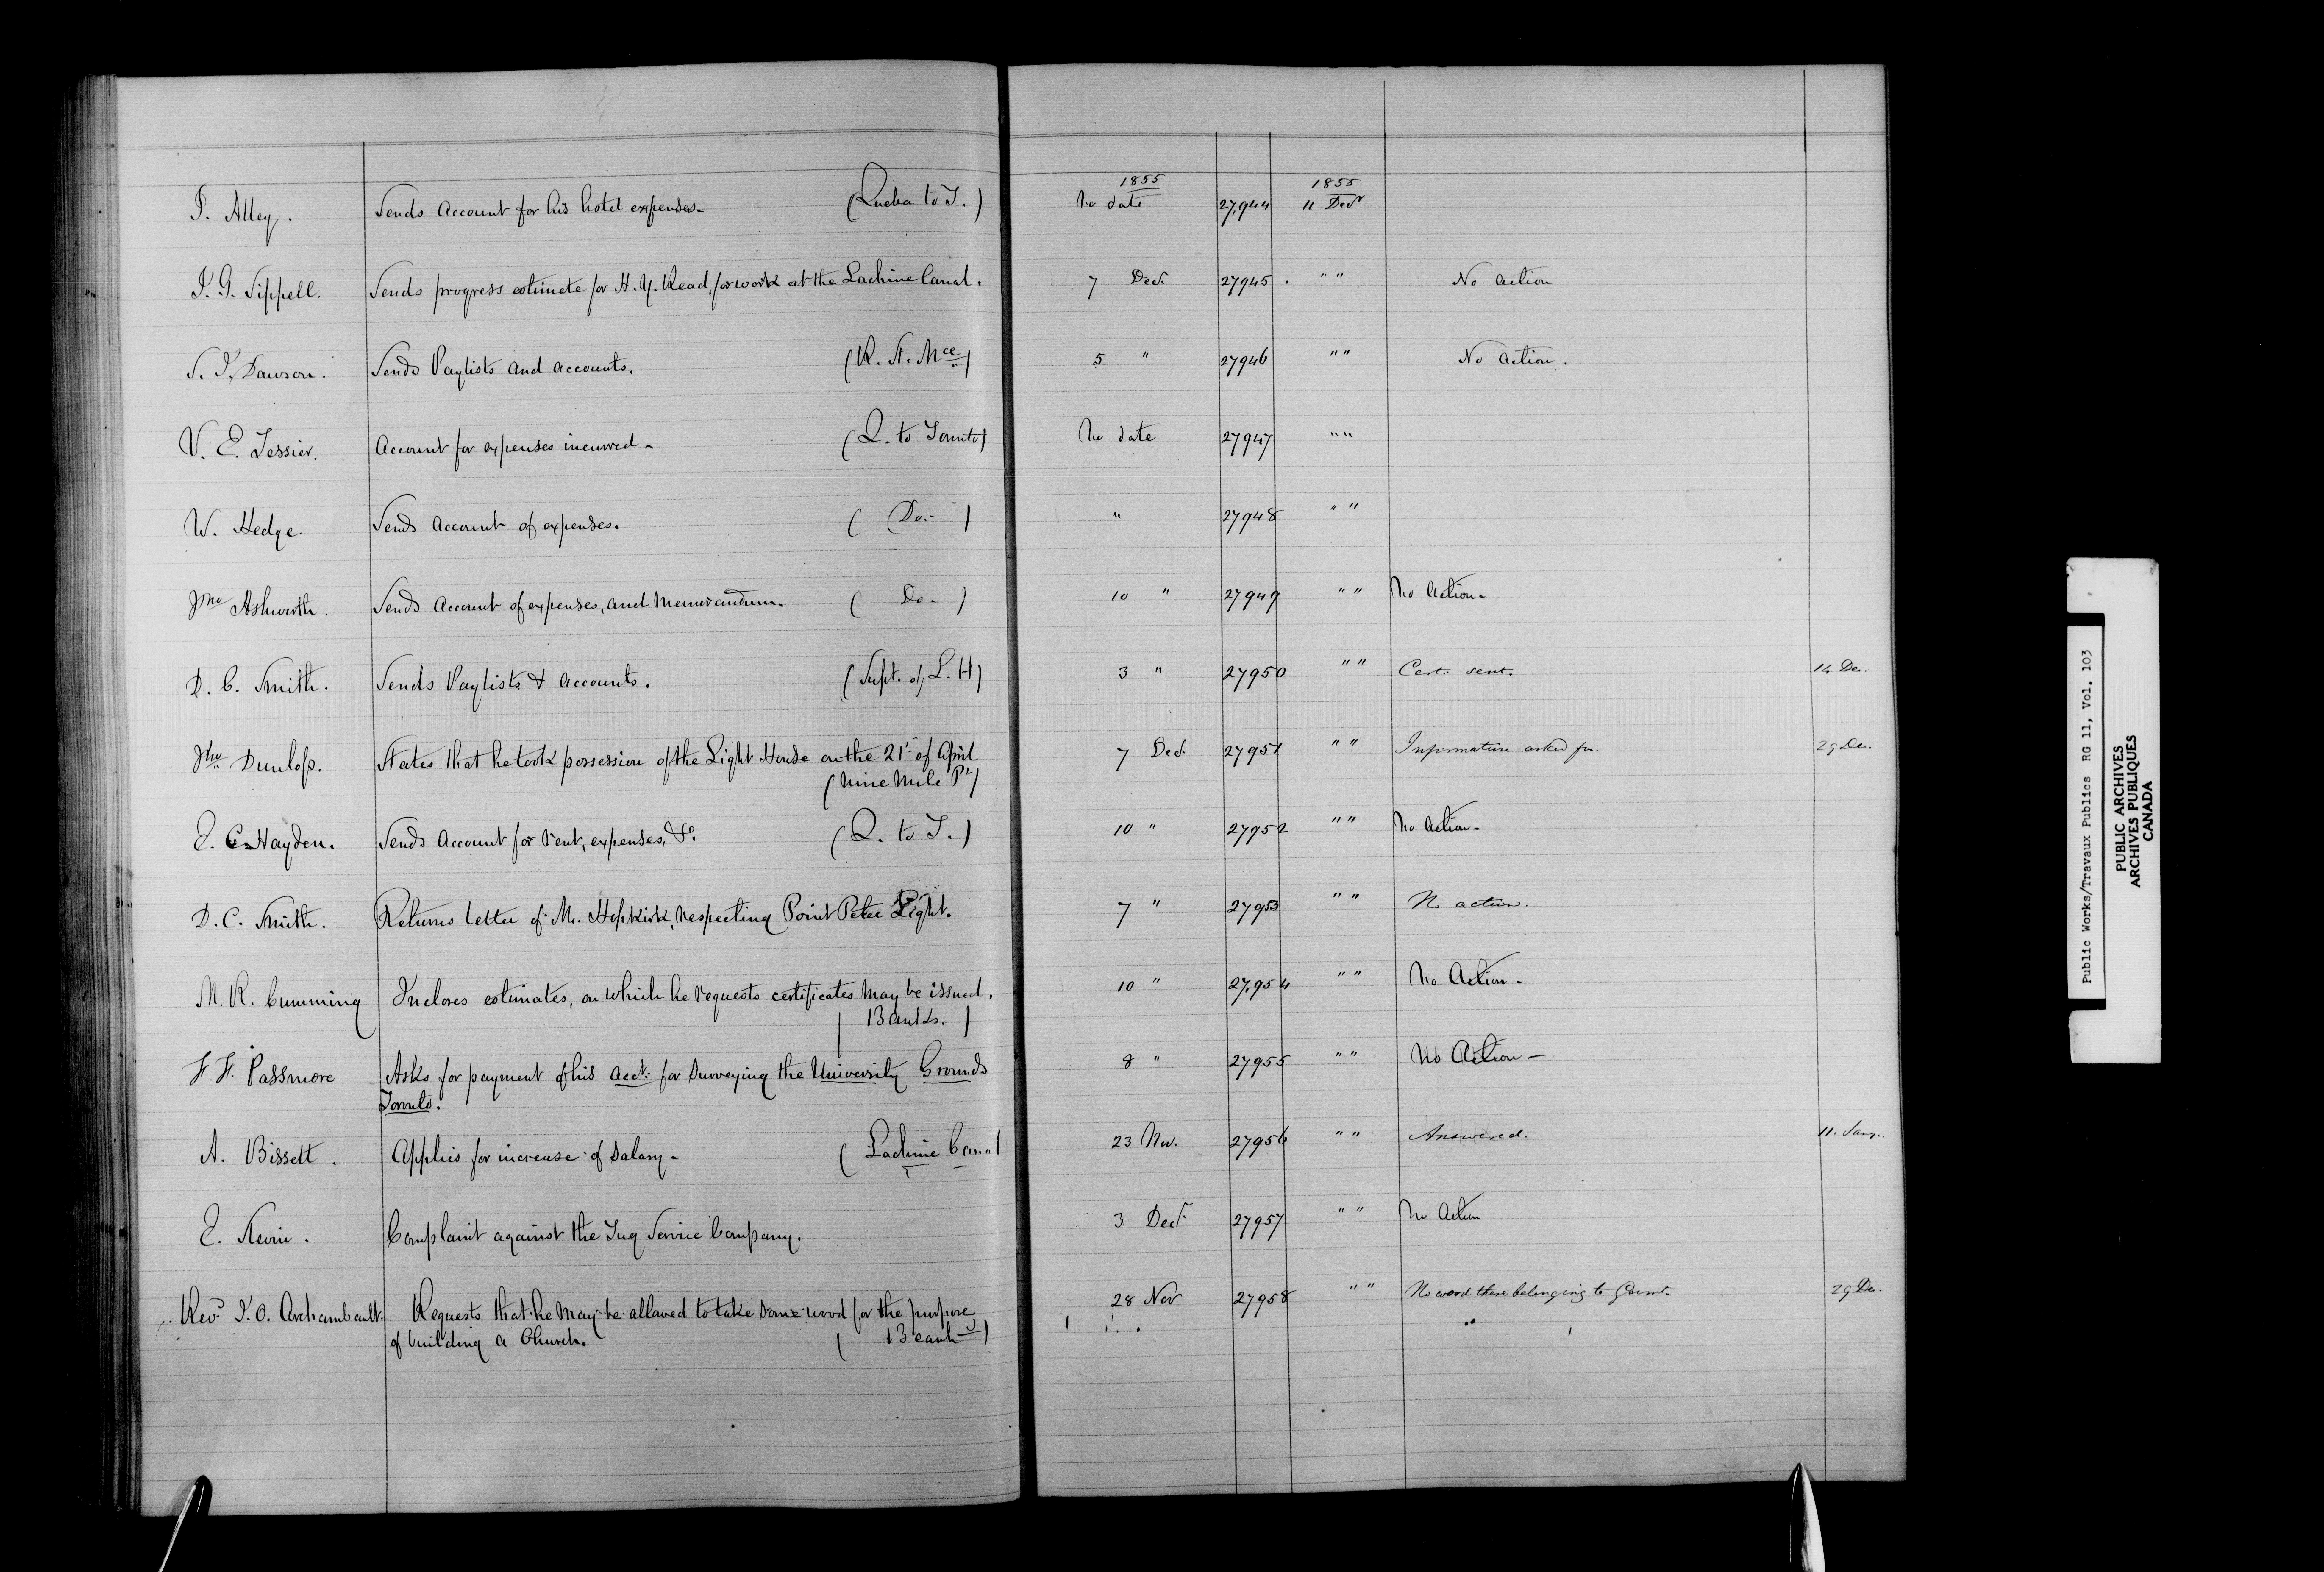 1855 1855
T. Alley. Sends Account for his hotel expenses- (Quebec to T.) No date 27,944 11 Decr
J. G. Sippell. Sends progress estimate for H. Y. Read, for work at the Lachine Canal. 7 Decr. 27945 " " No action
S. J. Dawson. Sends Paylists and accounts. (R. St. Mce) 5 " 27946 " " No action.
V. E. Tessier. Account for expenses incurred- (Q. to Toronto) No date 27947 " "
W. Hedge. Sends Account of expenses. ( Do.- ) " 27948 " "
Jno Ashworth. Sends Account of expenses, and Memorandum. ( Do- ) 10 " 27949 " " No Action-
D. C. Smith. Sends Paylists & Accounts. (Supt. of L. H) 3 " 27950 " " Cert. sent. 14 De.
Jno Dunlop. States that he took possession of the Light House on the 21st of April 7 Decr. 27951 " " Information asked for. 29 De.
(Nine Mile Pt)
E. C. Hayden. Sends Account for rent, expenses, &c. (Q. to T.) 10 " 27952 " " No action-
D. C. Smith. Returns letter of Mr. Hopkirk, respecting Point Peter Light. 7 " 27953 " " No action.
M. R. Cumming Incloses estimates, on which he requests certificates may be issued. 10 " 27,954 " " No Action-
( Bauks. )
F. F. Passmore Asks for payment of his acct. for Surveying the University Grounds 8 " 27955 " " No Action-
Toronto.
A. Bissett. Applies for increase of Salary- (Lachine Canal 23 Nov. 27956 " " Answered. 11. Jany.
E. Complaint against the Tug Service Company. 3 Decr. 27957 " " No Action
Revd J. O. Archambault. Requests that he may be allowed to take some wood for the purpose 28 Nov 27958 " " No wood there belonging to Govmt. 29 De.
of building a Church. ( Beauh )
Public Works/Travaux Publics RG 11, Vol. 103
PUBLIC ARCHIVES
ARCHIVES PUBLIQUES
CANADA